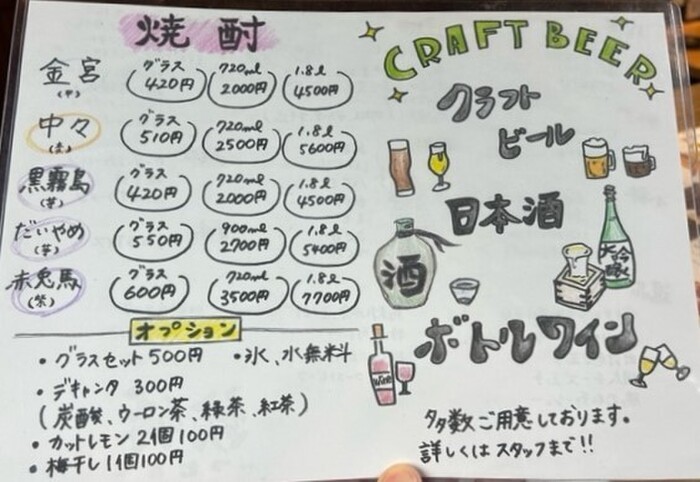 焼酎
金宮 グラス 420円 720ml 2000円 1.8ℓ 4500円
(甲)
中々 グラス 510円 720ml 2500円 1.8ℓ 5600円
(麦)
黒霧島 グラス 420円 720ml 2000円 1.8ℓ 4500円
(芋)
だいやめ グラス 550円 900ml 2700円 1.8ℓ 5400円
(芋)
赤兎馬 グラス 600円 720ml 3500円 1.8ℓ 7700円
オプション
・グラスセット500円 ・氷、水無料
・デキャンタ 300円
(炭酸、ウーロン茶、緑茶、紅茶)
・カットレモン 2個100円
・梅干し1個100円
CRAFT BEER
クラフト
ビール
日本酒
酒
大吟醸
ボトルワイン
Wine
多数ご用意しております。
詳しくはスタッフまで!!